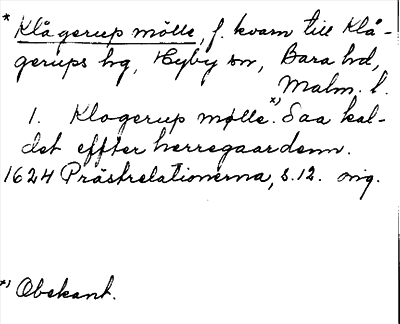 * Klågerup mölle, f. kvarn till Klå-
gerups hg, Hyby sn, Bara hd,
Malm. l.
1. Klogerup mølle.*) Saa kal-
det effter herregaardenn.
1624 Prästrelationerna, s. 12. orig.
*) Obekant.